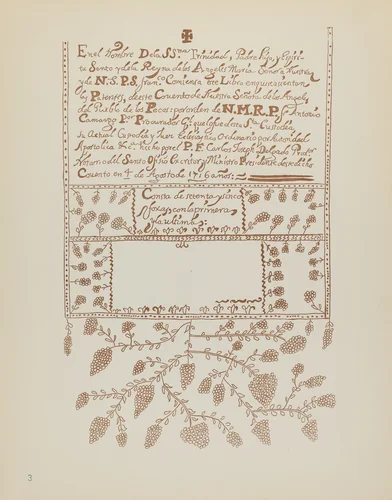 En el Nombre De la SSma Trinidad, Padre, Hijo, y Espiri-
tu Santo y de la Reyna de los Angeles Maria Señora Nuestra
y de N. S. P. S. Franco. Comiensa Este Libro en que se asientan
las Patentes, de este Convento de Nuestra Señora de los Angeles
del Pueblo de los Pecos: por orden de N. M. R. P. Fr. Antonio
Camargo Por. Procurador Gl. que fue de esta Sta. Custodia
su Actual Custodio y Juez Eclesiastico Ordinario por Autoridad
Apostolica &c. hecho por el P. F. Carlos Joseph Delgado Predor.
Notario del Santo Ofisio Escritor y Ministro Presidente de este dicho
Convento en 4 de Agosto de 1716 años:
Consta de setenta y sinco
fojas, con la primera
y la ultima:
3